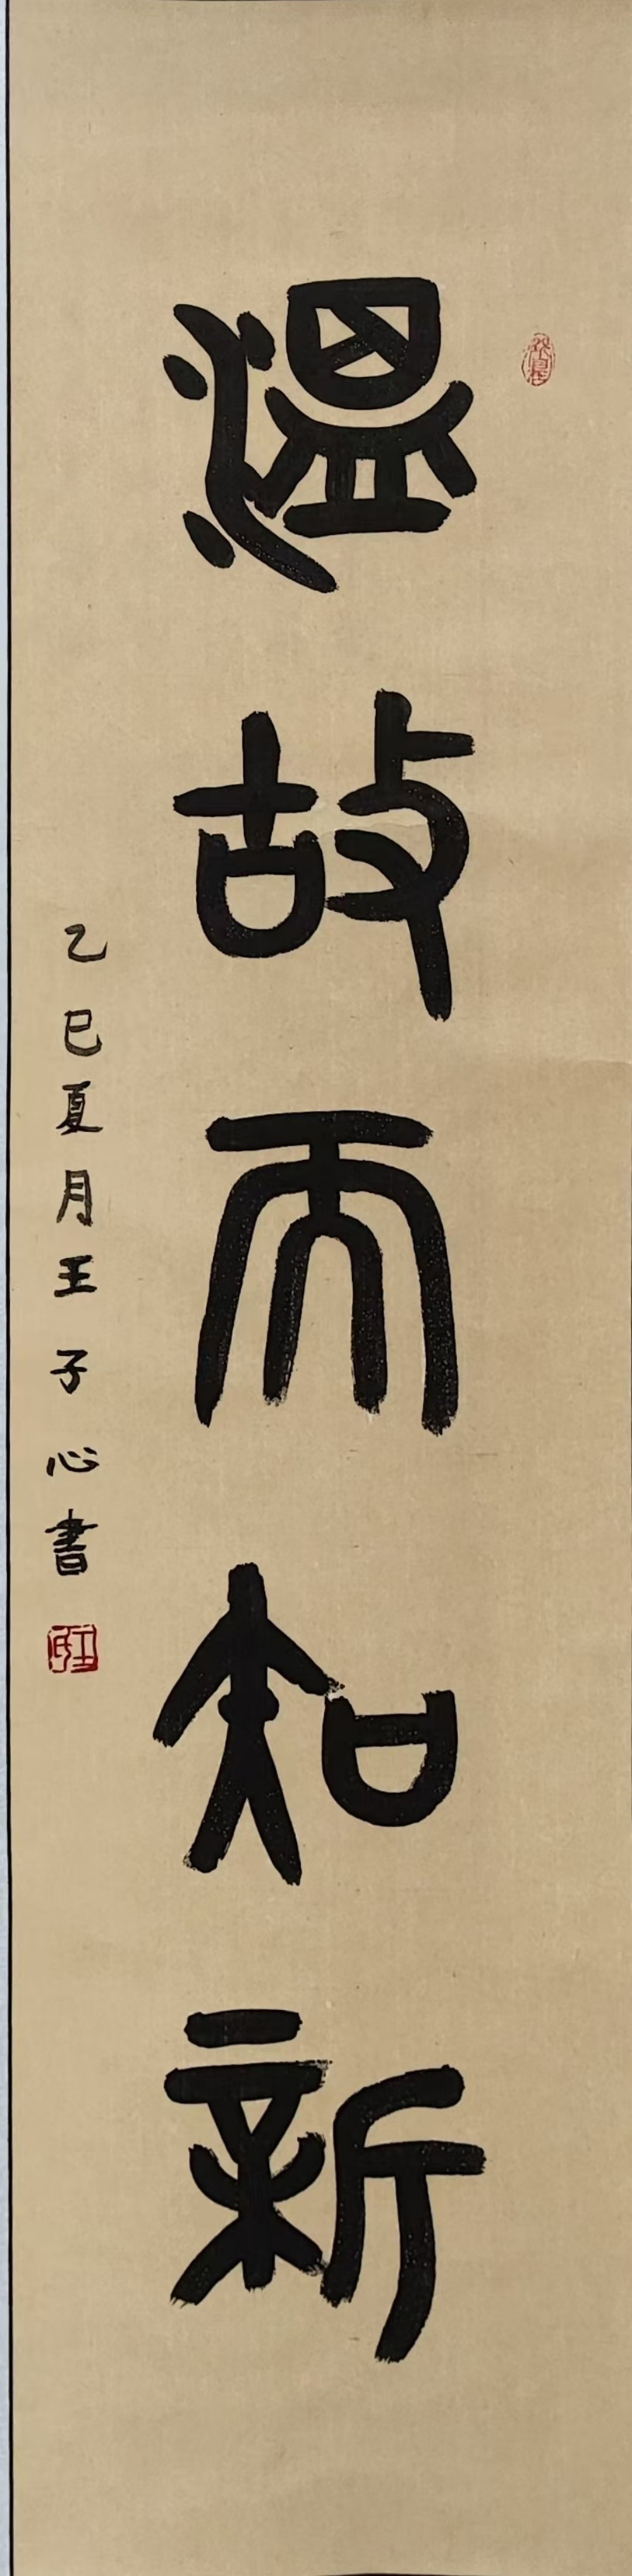 溫故而知新
乙巳夏月王子心書